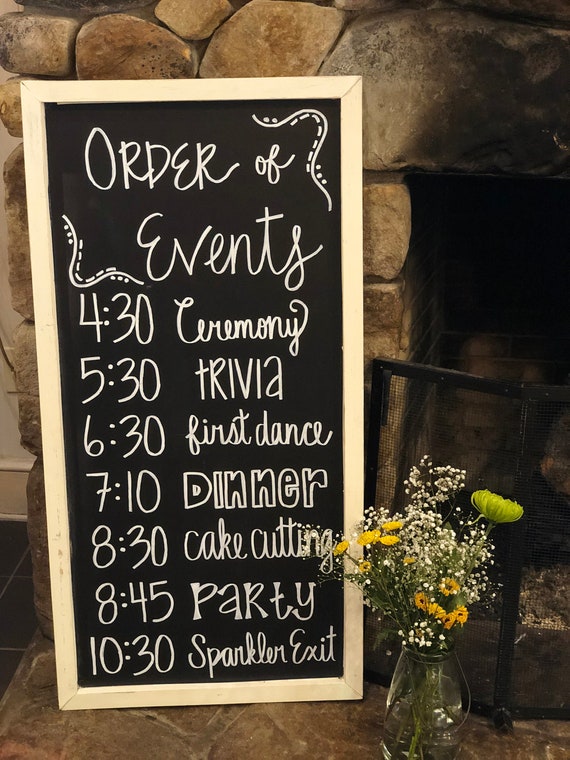 ORDER of
Events
4:30 Ceremony
5:30 TRIVIA
6:30 first dance
7:10 Dinner
8:30 cake cutting
8:45 Party
10:30 Sparkler Exit